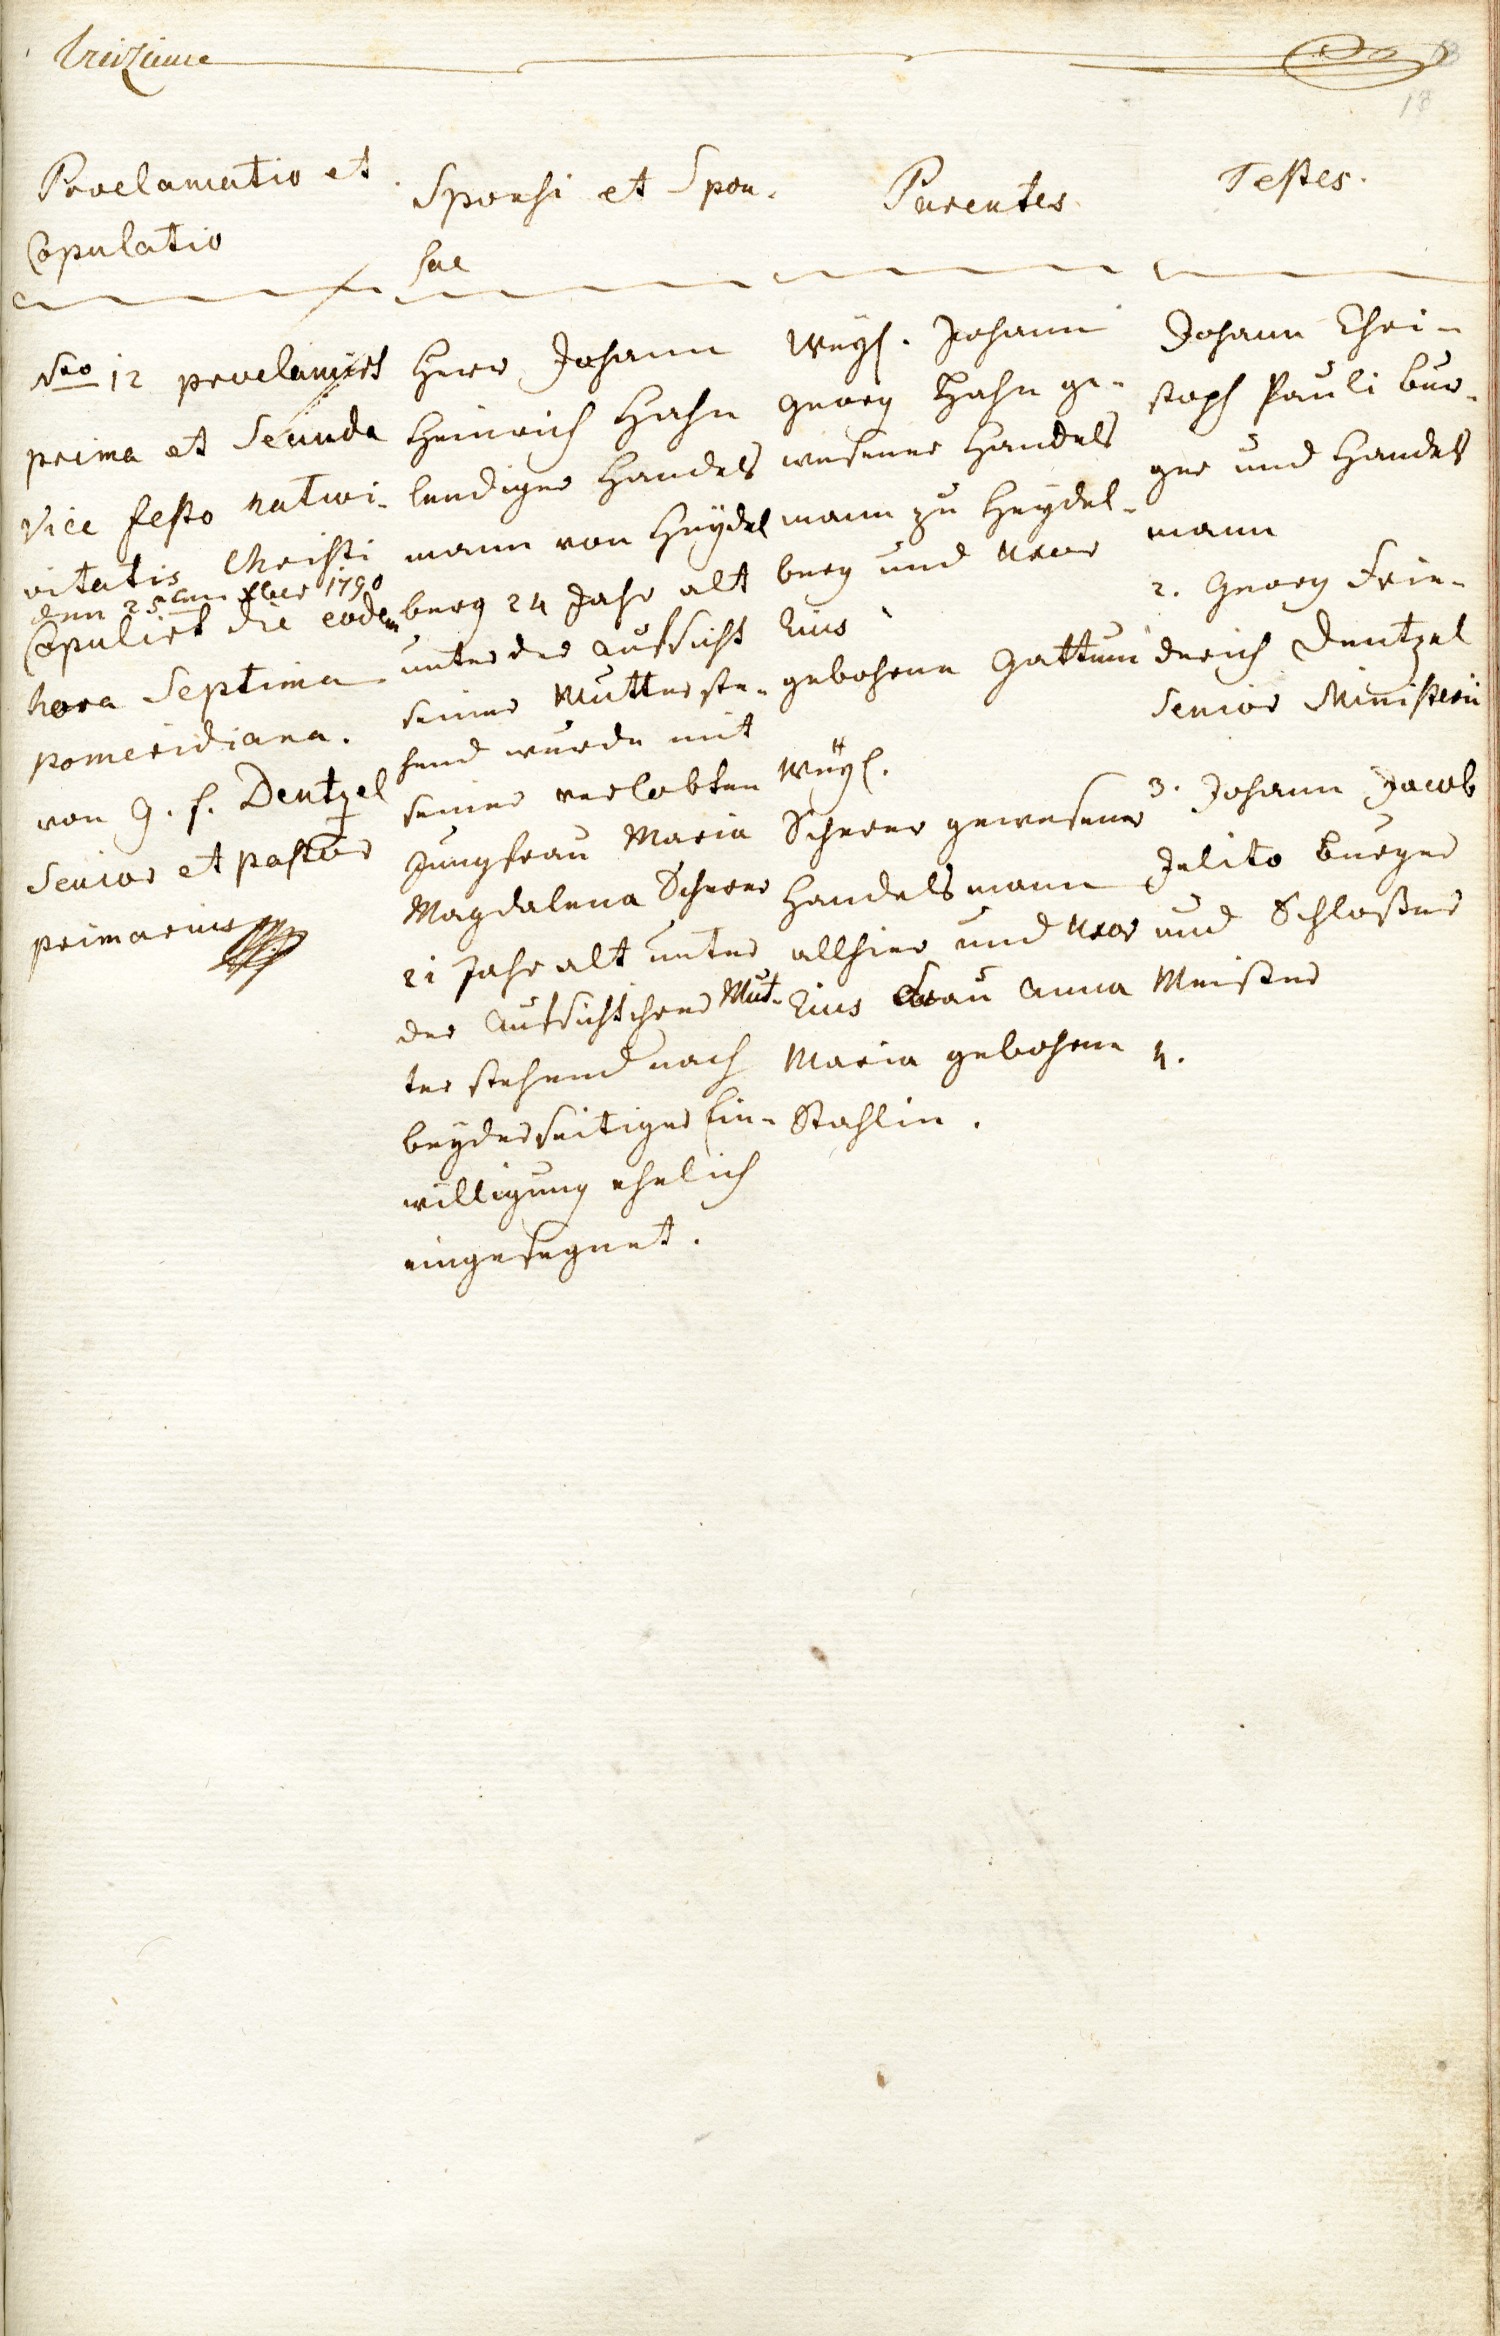 13
18
Proclamatio et
Copulatio
Nro 12 proclamirt
prima et Secunda
Vice festo nativi-
vitatis Christi
den 25ten Xber 1790
Copulirt die eodem
hora Septima
pomeridiana.
von G. F. Dentzel
Senior et pastor
primarius
Sponsi et Spon-
sae
Herr Johann
Heinrich Hahn
lendiger Handels
mann von Heydel
berg 24 Jahr alt
unter der Aufsicht
seiner Mutter ste-
hend wurde mit
seiner verlobten
Jungfrau Maria
Magdalena Scherer
21 Jahr alt unter
der Aufsicht ihrer Mut-
ter stehend nach
beyderseitiger Ein-
willigung ehelich
eingesegnet.
Parentes
Weyl. Johann
Georg Hahn ge-
wesener Handels
mann zu Heydel-
berg und Uxor
Eius
gebohrne
Weyl.
Scherer gewesener
Handelsmann
allhier und Uxor
Eius Frau Anna
Maria gebohrne
Stahlin.
Testes.
Johann Chri-
stoph Pauli bur-
ger und Handels
mann
2. Georg Frie-
derich Dentzel
Senior Ministerii
3. Johann Jacob
Jelito burger
und Schloßer
Meister
4.